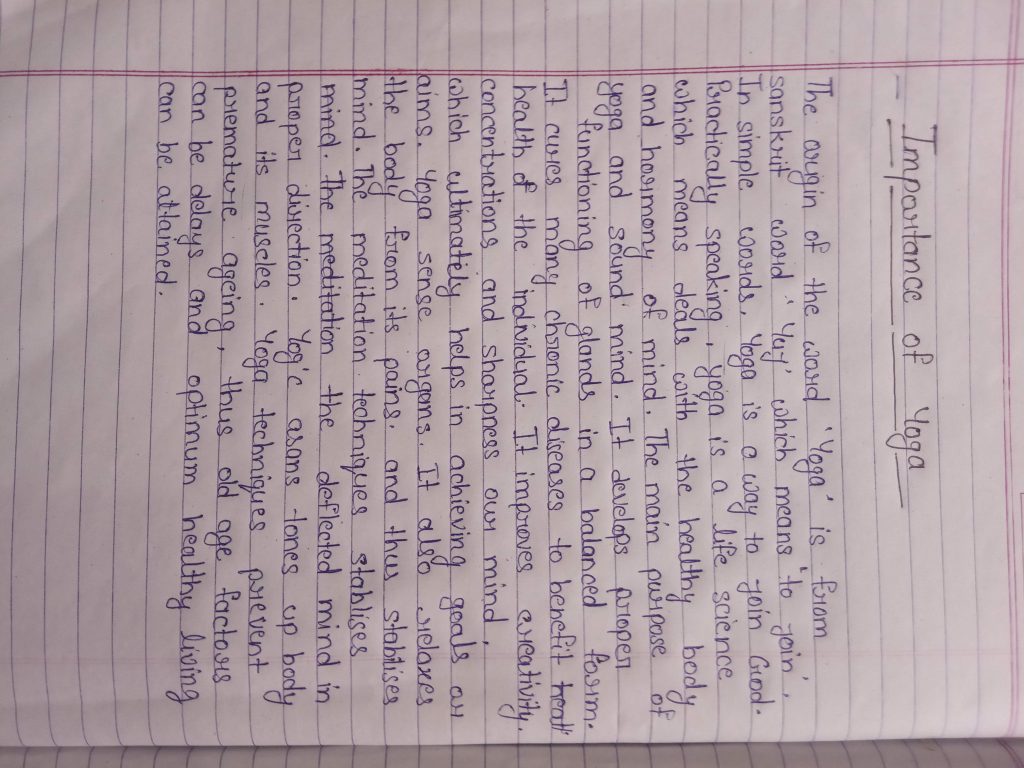 Importance of Yoga
The origin of the word 'Yoga' is from
sanskrit word 'Yuj' which means 'to join'.
In simple words, Yoga is a way to join God.
Practically speaking, yoga is a life science
which means deals with the healthy body
and harmony of mind. The main purpose of
yoga and sound mind. It develops proper
functioning of glands in a balanced form.
It cures many chronic diseases to benefit
health of the individual. It improves creativity,
concentrations and sharpness our mind,
which ultimately helps in achieving goals or
aims. Yoga sense organs. It also relaxes
the body from its pains. and thus stabilises
mind. The meditation techniques stablises
mind. The meditation the deflected mind in
proper direction. Yog'c asans tones up body
and its muscles. Yoga techniques prevent
premature ageing, thus old age factors
can be delays and optimum healthy living
can be attained.